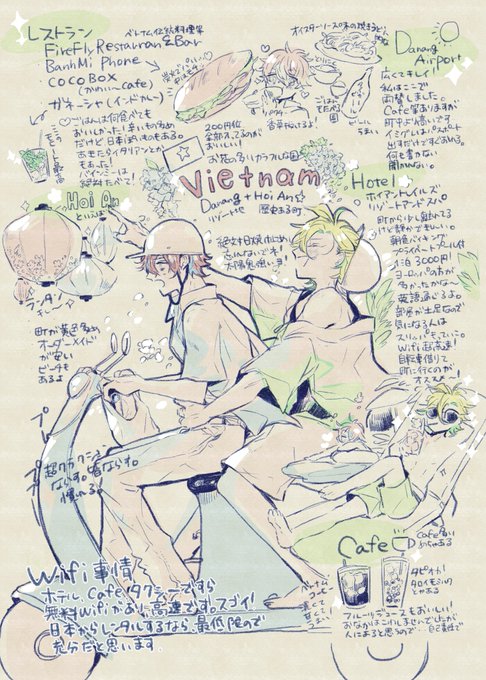 レストラン
ベトナム伝統料理等
FireFly Restaurant & Bar
BanhMi Phone
COCOBOX
(かわいいcafe)
ガネーシャ(インドカレー)
♡ごはんは何食べても
おいしかった!辛いものも多め
だけど日本
あきたらイタリアンとかも
もあった!
バインミーは
絶対たべて!
200円位
全部入ってるのが
おいしい!
オイスターソース味の焼きうどん的な
香草
うまい
お花の多いカラフルな国
Vietnam
Danang + Hoi An☆
リゾート地
歴史ある町
絶対日焼け止め
太陽
Danang
Airport
広くてキレイ!
私はここで
両替しました。
Cafe等ありますが
町中より高いです
イミグレは
パスポート
出すだけですぐおわる。
何も書かない
聞かない。
Hoi An
といえば
ランタン
キレーイ
町が黄色
オーダーメイド
が安い
ビーチも
あるよ
Hotel
ホイアントレイルズ
リゾートアンドスパ
町から少し離れてる
けど静かでキレイ。
朝食バイキング
プライベートプール付
1泊3000円!
ヨーロッパの方が
多かったかな〜
英語通じるよ。
部屋が土足なので
気になる人は
スリッパもっていこ。
Wifi超高速!
自転車借りて
町に行くのが
オススメ!
プ
プ
超クラクション
ならす。皆ならす。
慣れる。
Wifi事情
ホテル、Cafe、タクシーですら
無料wifiがあり高速です。スゴイ!
日本からレンタルするなら、最低限ので
充分だと思います。
Cafe
cafe多い
めっちゃある
タピオカ!
タロイモ
とかある
ベトナム
コーヒー
濃くて
甘くて
うまい
フルーツジュースもおいしい!
おなかはこわしませんでしたが
人によると思うので…自己責任で